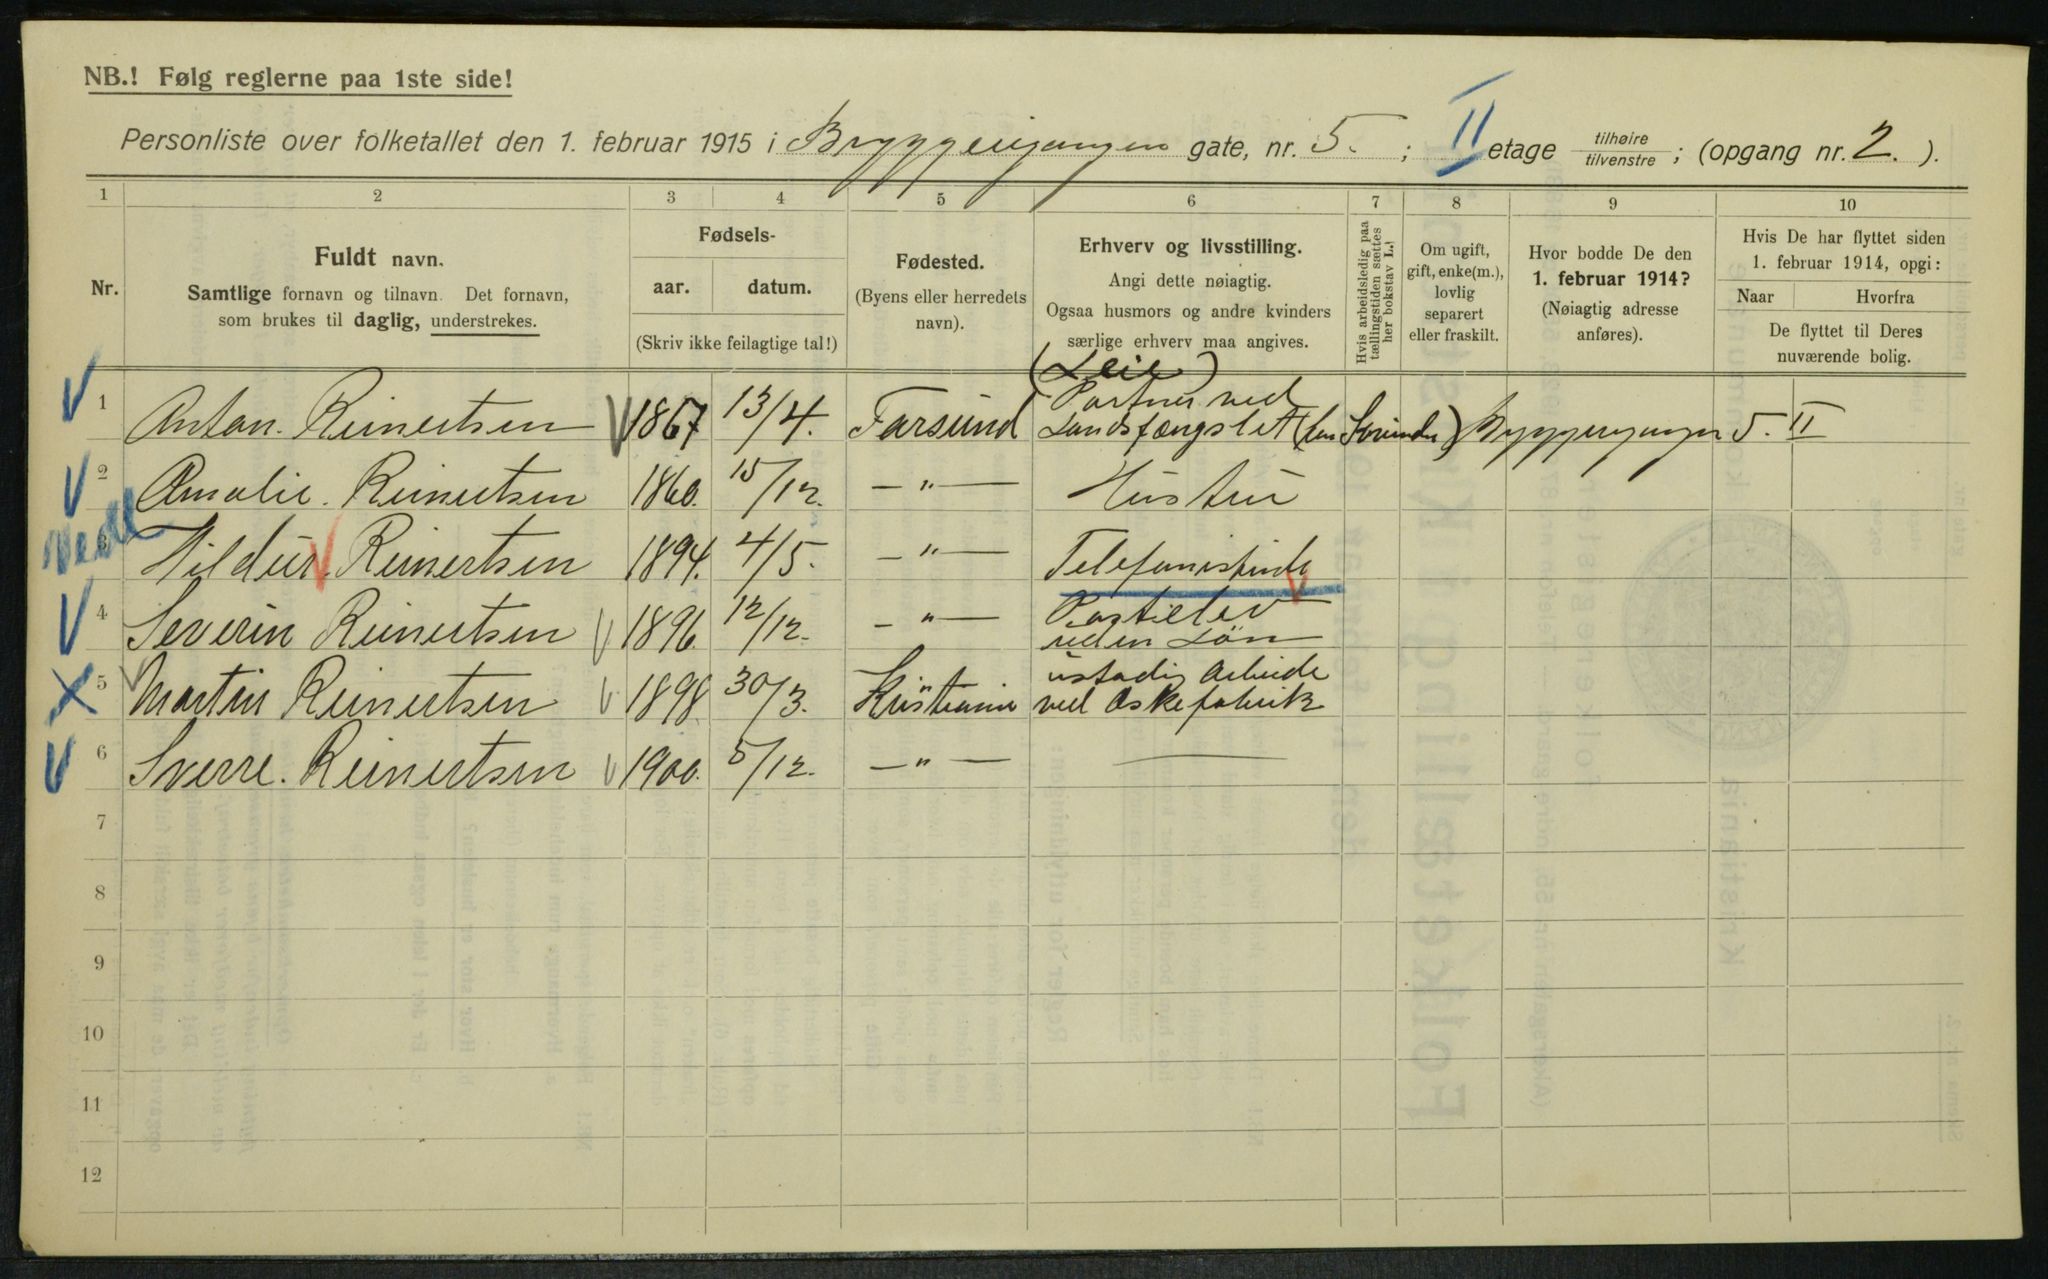 NB.! Følg reglerne paa 1ste side!
Personliste over folketallet den 1. februar 1915 i Bryggerigangen gate, nr. 5. ; II etage tilhøire / tilvenstre ; (opgang nr. 2. ).
1 2 3 4 5 6 7 8 9 10
Nr.
Fuldt navn.
Samtlige fornavn og tilnavn. Det fornavn,
som brukes til daglig, understrekes.
Fødsels-
aar. datum.
(Skriv ikke feilagtige tal!)
Fødested.
(Byens eller herredets
navn).
Erhverv og livsstilling.
Angi dette nøiagtig.
Ogsaa husmors og andre kvinders
særlige erhverv maa angives.
Hvis arbeidsledig paa
tællingstiden sættes
her bokstav L.!
Om ugift,
gift, enke(m.),
lovlig
separert
eller fraskilt.
Hvor bodde De den
1. februar 1914?
(Nøiagtig adresse
anføres).
Hvis De har flyttet siden
1. februar 1914, opgi:
Naar Hvorfra
De flyttet til Deres
nuværende bolig.
(Leie)
1 Anton. Reinertsen 1867 13/4. Farsund Portner ved
Landsfængslet Bryggerigangen 5. II
2 Amalie. Reinertsen 1860. 15/12. — " — Hustru
3 Hildur. Reinertsen 1894. 4/5. — " — Telefonistinde
4 Severin Reinertsen 1896 12/12. — " — Postelev
uden Løn
5 Martin Reinertsen 1898 30/3. Kristiania ustadig Arbeide
ved Eskefabrik
6 Sverre. Reinertsen 1900. 5/12. — " — —
7
8
9
10
11
12